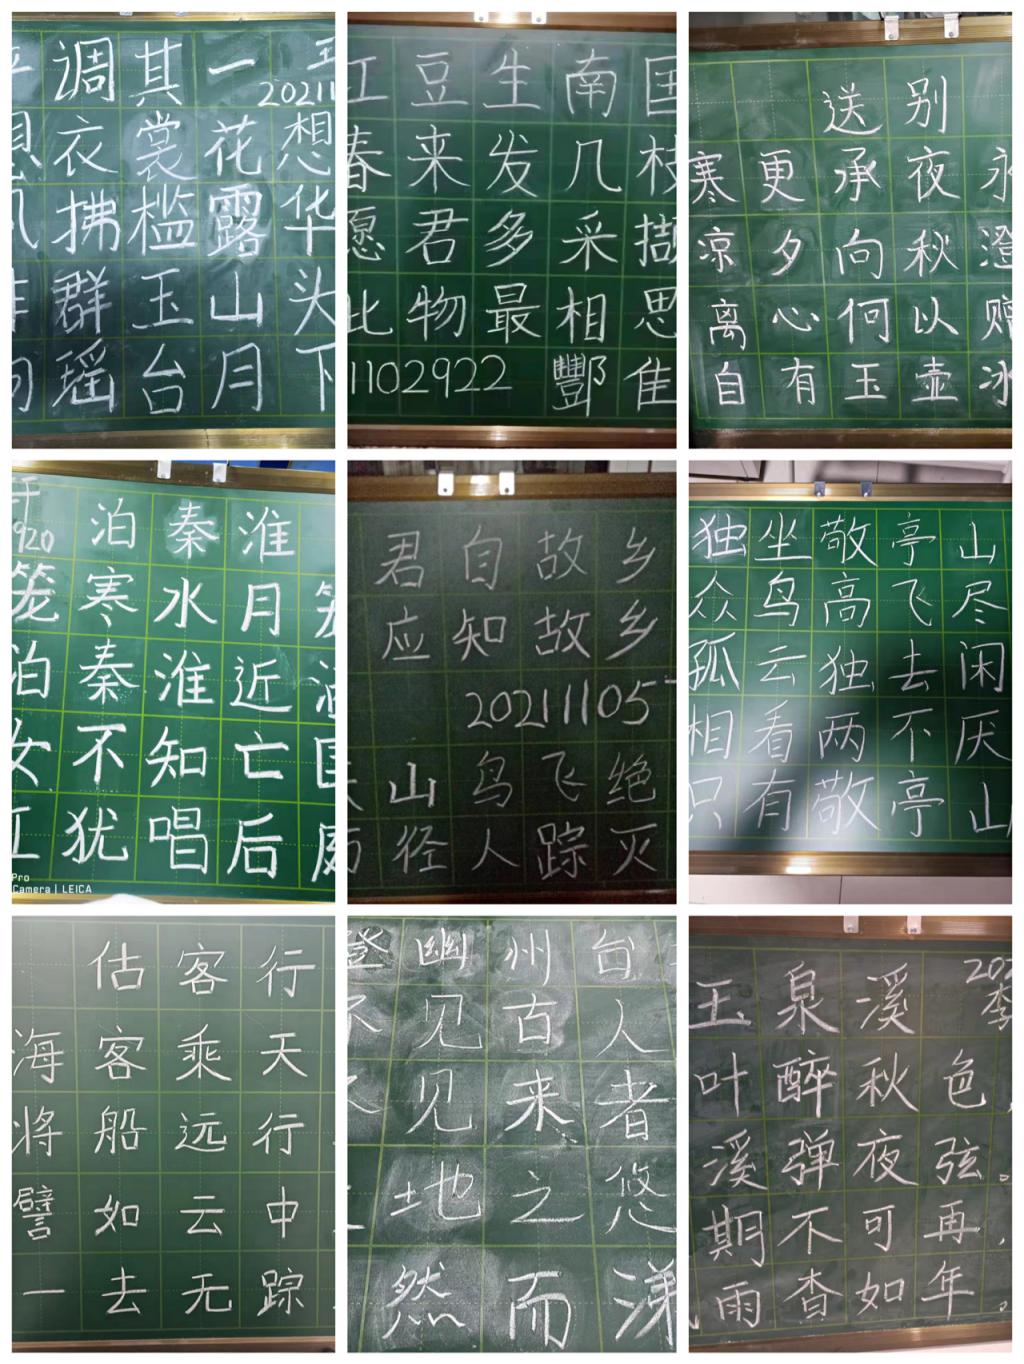 调其一
20211
想衣裳花想
拂槛露华
群玉山头
瑶台月下
豆生南国
春来发几枝
愿君多采撷
此物最相思
1102922 酆隹
送别
寒更承夜永
凉夕向秋澄
离心何以赠
自有玉壶冰
泊秦淮
920
笼寒水月
泊秦淮近
女不知亡
犹唱后
Pro
Camera | LEICA
君自故乡
应知故乡
20211105
山鸟飞绝
径人踪灭
独坐敬亭山
众鸟高飞尽
孤云独去闲
相看两不厌
只有敬亭山
估客行
海客乘天
将船远行
譬如云中
一去无踪
登幽州台
见古人
见来者
地之悠
然而涕
玉泉溪
202
李
叶醉秋色，
溪弹夜弦。
期不可再，
雨杳如年。